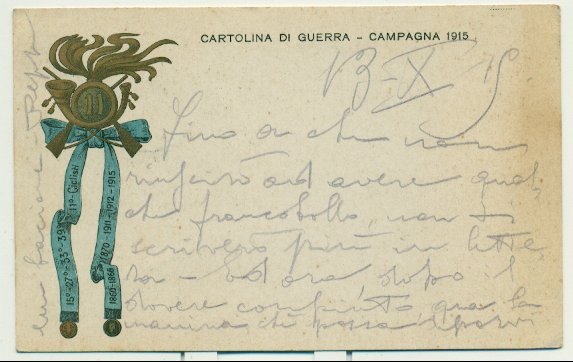 CARTOLINA DI GUERRA - CAMPAGNA 1915
13-X 15
11
11º. Ciclisti
15º-27º-33º-39º
1870-1911-1912-1915
1860-1866
Fino a che non
riuscirò ad avere qual
che francobollo, non
scriverò più in lette
ra - Ed ora, dopo il
dovere compiuto qua la
manina, che possa
un bacione